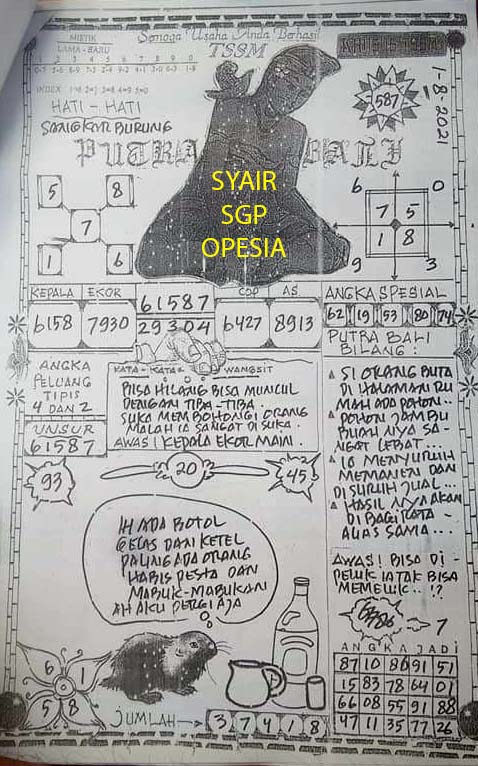 MISTIK
LAMA - BARU
1 2 3 4 5 6 7 8 9 0
Semoga Usaha Anda Berhasil
TSSM
1-8-2021
587
HATI - HATI
SANGKAR BURUNG
PUTRA BALI
SYAIR
SGP
OPESIA
5 8
7
1 6
6 0
7 5
1 8
9 3
KEPALA EKOR
6158 7930
61587
29304
COP AS
6427 8913
ANGKA SPESIAL
62 19 53 80 74
ANGKA
PELUANG
TIPIS
4 DAN 2
UNSUR
61587
93
KATA - KATA WANGSIT
BISA HILANG BISA MUNCUL
DENGAN TIBA-TIBA.
SUKA MEMBOHONGI ORANG
MALAH IA SANGAT DI SUKA.
AWAS! KEPALA EKOR MAIN.
20
45
PUTRA BALI
BILANG:
SI ORANG BUTA
DI HALAMAN RU
MAH ADA POHON..
POHON JAMBU
BUAH NYA SA-
NGAT LEBAT...
IA MENYURUH
MEMANEN DAN
DI SURUH JUAL...
HASIL NYA AKAN
DI BAGI RATA-
ALIAS SAMA...
AWAS! BISA DI-
PELUK IA TAK BISA
MEMELUK..!?
7
IH ADA BOTOL
GELAS DAN KETEL
PALING ADA ORANG
HABIS PESTA DAN
MABUK-MABUKAN
AH AKU PERGI AJA
6 1
5 8
JUMLAH
3 7 4 1 8
ANGKA JADI
87 10 80 91 51
15 83 78 64 01
66 08 55 91 88
47 11 35 77 26